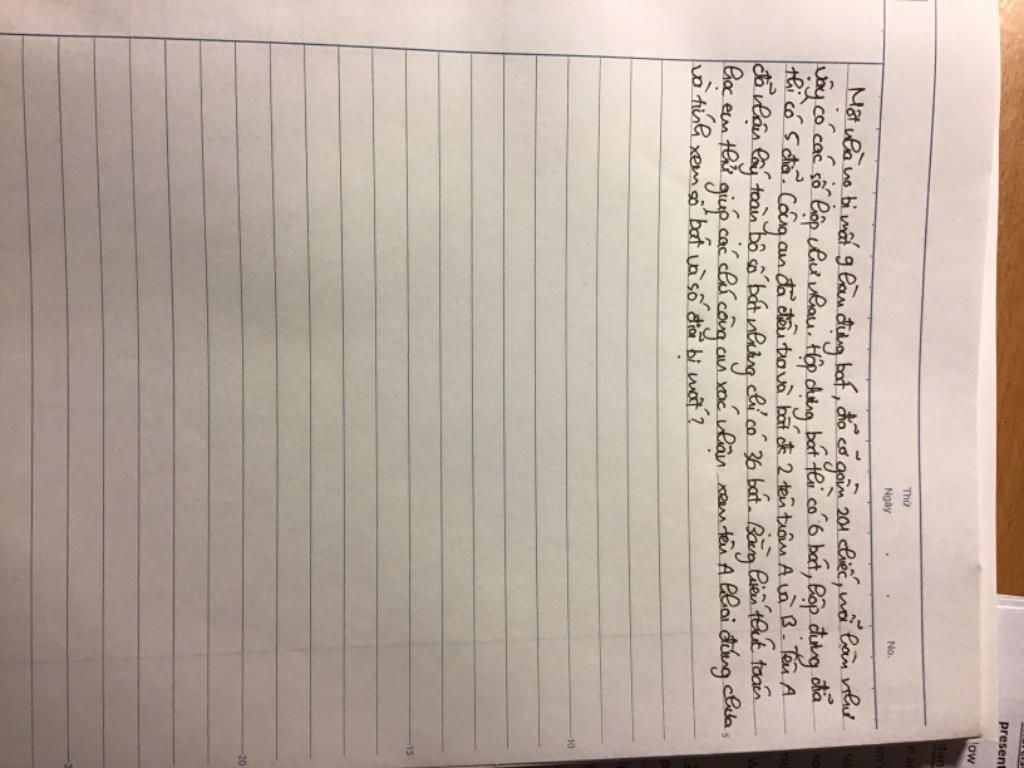 Thứ
Ngày . . No.
Một nhà kho bị mất 9 lần đựng bát, đĩa cỡ gần 201 chiếc, mỗi lần như
vậy có các số hộp như nhau. Hộp đựng bát thì có 6 bát, hộp đựng đĩa
thì có 5 đĩa. Công an đã điều tra và bắt đc 2 tên trộm A và B. Tên A
đã nhận lấy toàn bộ số bát nhưng chỉ có 36 bát. Bằng kiến thức toán
học em thử giúp các chú công an xác nhận xem tên A khai đúng chưa
và tính xem số bát và số đĩa bị mất?
5
10
15
20
present